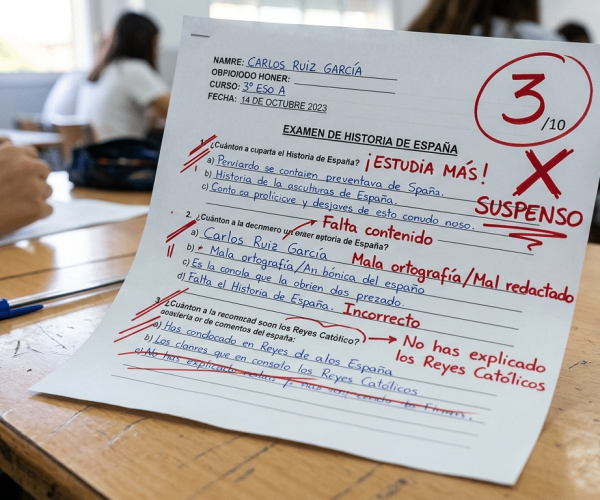 NAMRE: CARLOS RUIZ GARCÍA
OBFIOIODO HONER:
CURSO: 3º ESO A
FECHA: 14 DE OCTUBRE 2023
3/10
SUSPENSO
EXAMEN DE HISTORIA DE ESPAÑA
1. ¿Cuánton a cuparta el Historia de España? ¡ESTUDIA MÁS!
a) Perviardo se contaien preventava de Spaña.
b) Historia de la asculturas de España.
c) Conto ca prolicive y desjaves de esto conudo noso.
Falta contenido
2. ¿Cuánton a la decrmero un enter eptoria de España?
a) Carlos Ruiz García
Mala ortografía/Mal redactado
b) * Mala ortografía/An bónica del españo
c) Es la conola que la obrien dos prezado.
d) Falta el Historia de España. Incorrecto
3. ¿Cuánton a la recomicad soon los Reyes Católico?
de comentos del españa:
No has explicado
los Reyes Católicos
a) Has condocado en Reyes de alos España
b) Los clanres que en consolo los Reyes Católicos
c) No has explicado